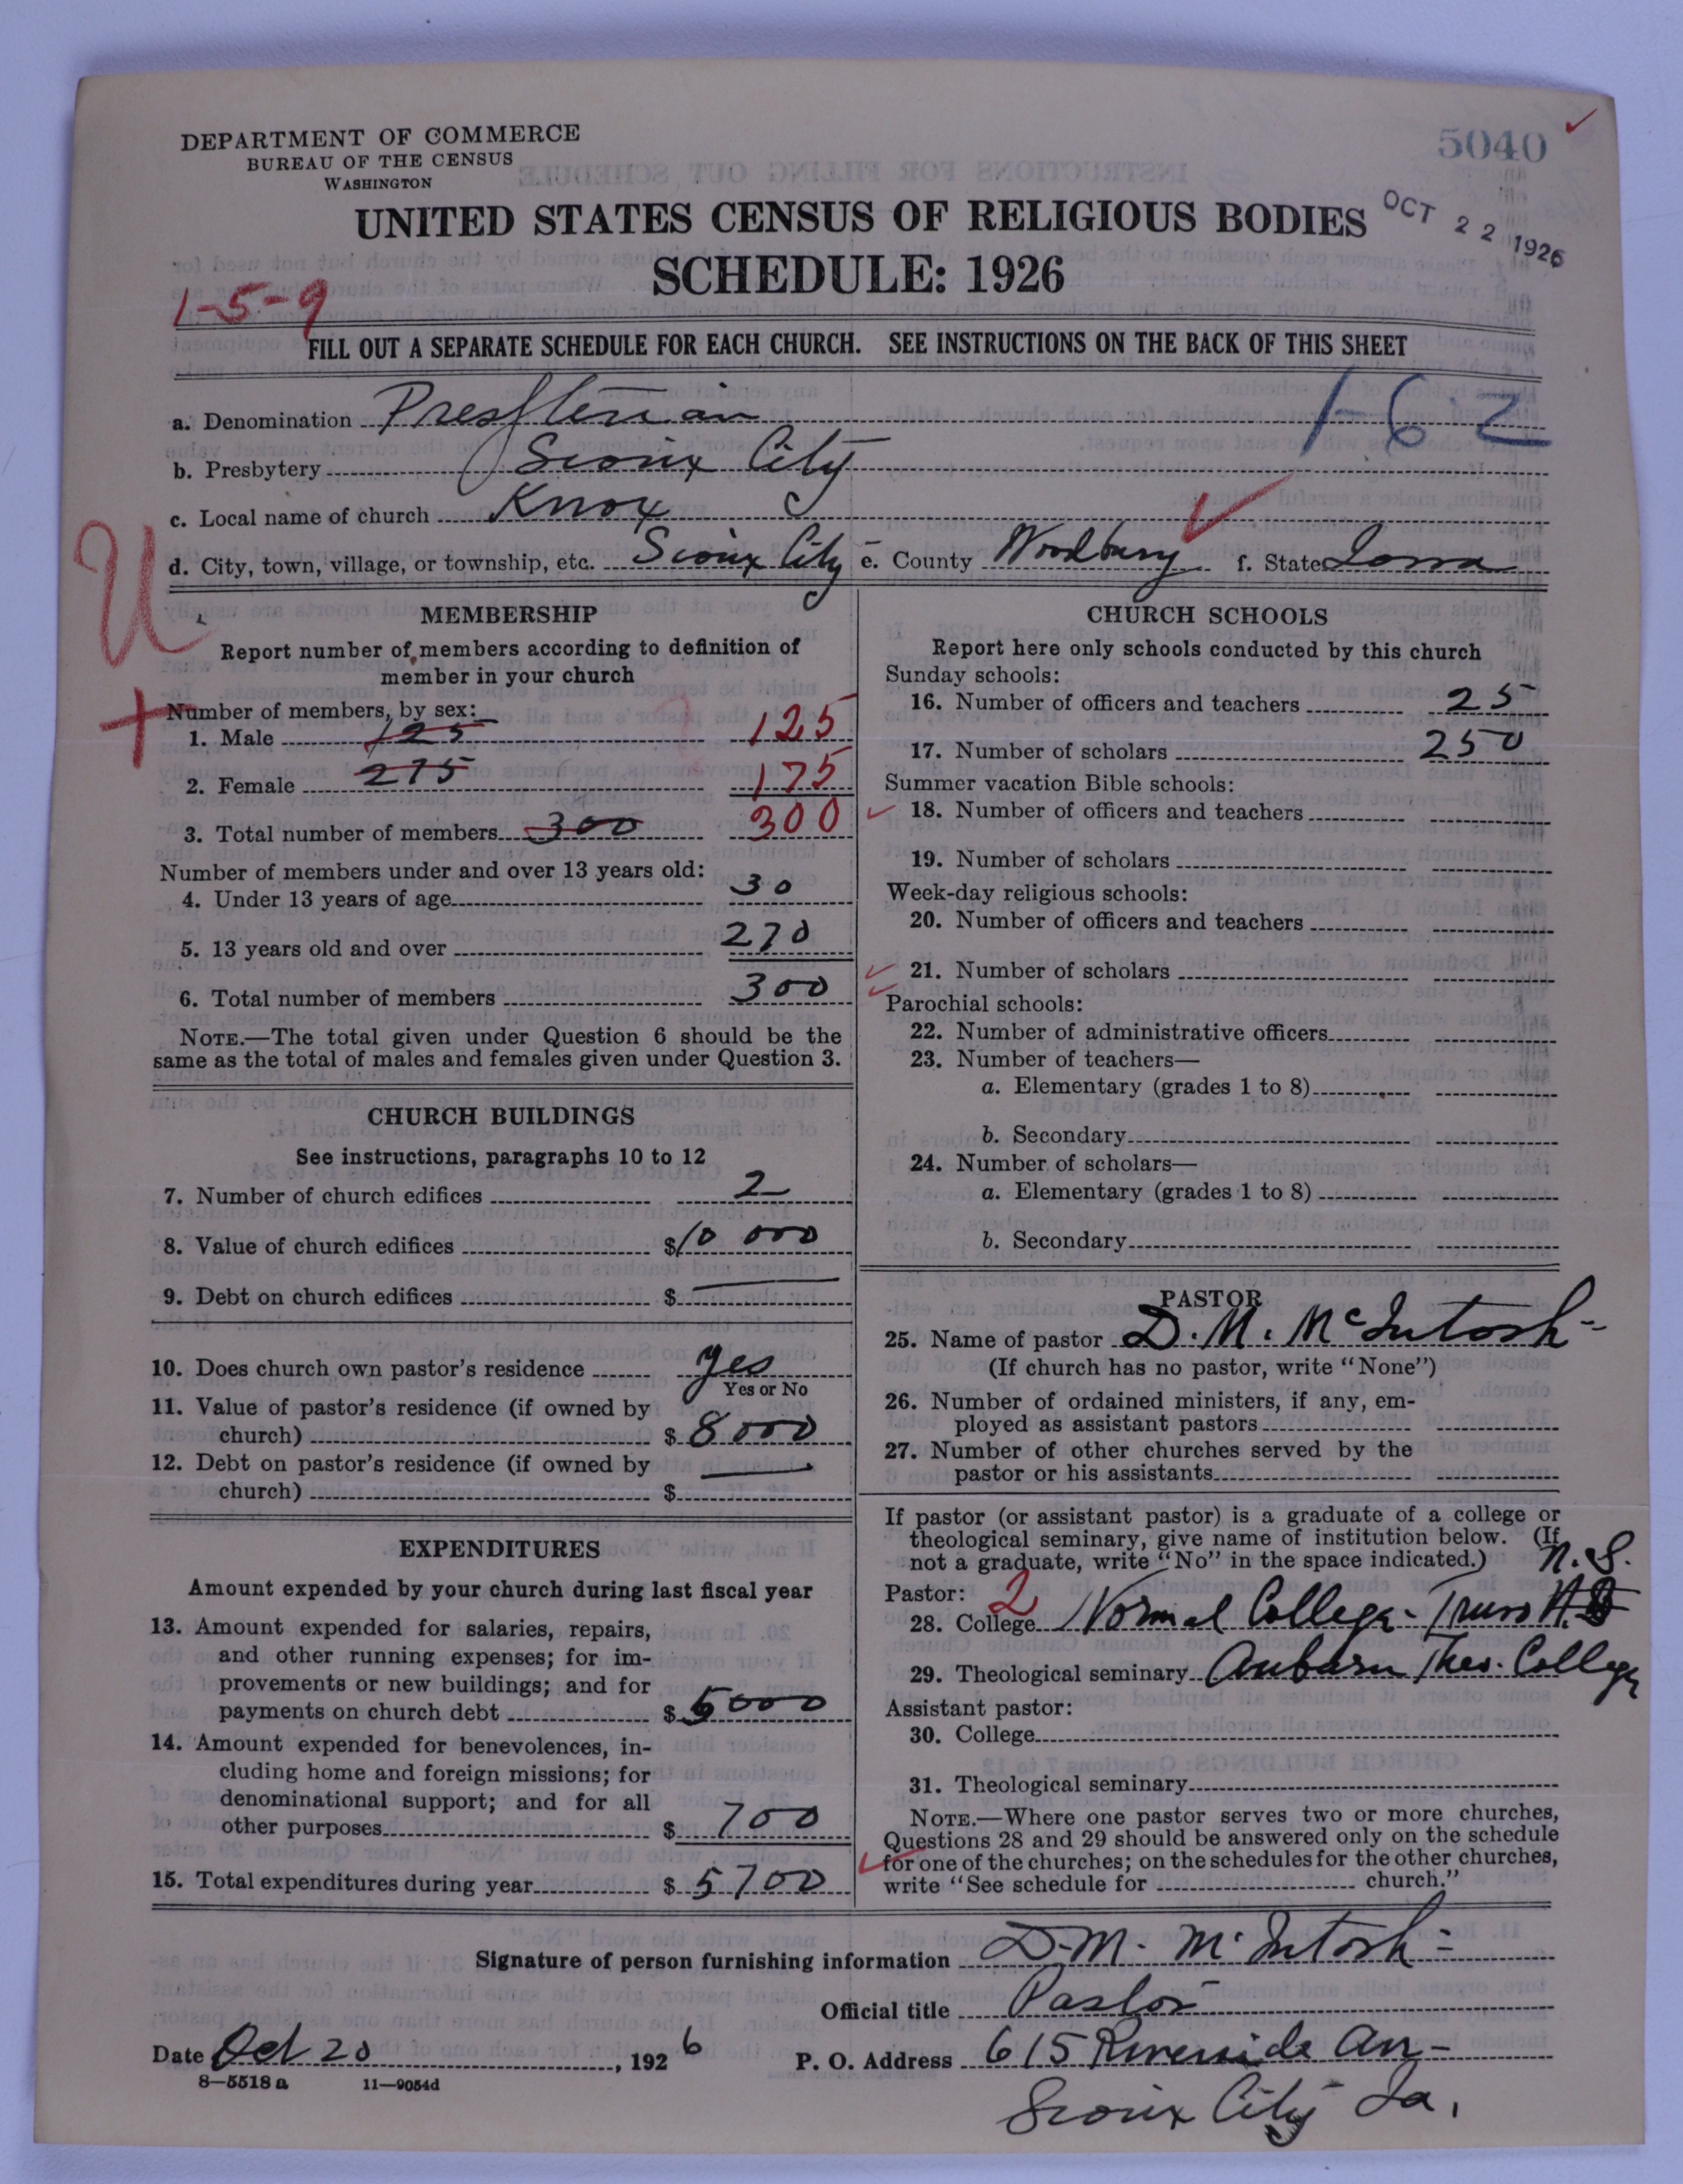 DEPARTMENT OF COMMERCE
BUREAU OF THE CENSUS
WASHINGTON
5040
OCT 22 1926
UNITED STATES CENSUS OF RELIGIOUS BODIES
SCHEDULE: 1926
1-5-9
FILL OUT A SEPARATE SCHEDULE FOR EACH CHURCH. SEE INSTRUCTIONS ON THE BACK OF THIS SHEET
1-62
a. Denomination Presbterian
b. Presbytery Sioux City
c. Local name of church Knox
d. City, town, village, or township, etc. Sioux City e. County Woodbury f. State Iowa
U
+
MEMBERSHIP
Report number of members according to definition of
member in your church
Number of members, by sex:
1. Male 125 125
2. Female 275 175
3. Total number of members 300 300
Number of members under and over 13 years old:
4. Under 13 years of age 30
5. 13 years old and over 270
6. Total number of members 300
NOTE.—The total given under Question 6 should be the
same as the total of males and females given under Question 3.
CHURCH BUILDINGS
See instructions, paragraphs 10 to 12
7. Number of church edifices 2
8. Value of church edifices $10 000
9. Debt on church edifices $ —
10. Does church own pastor's residence yes
Yes or No
11. Value of pastor's residence (if owned by
church) $ 8000
12. Debt on pastor's residence (if owned by
church) $ —
EXPENDITURES
Amount expended by your church during last fiscal year
13. Amount expended for salaries, repairs,
and other running expenses; for im-
provements or new buildings; and for
payments on church debt $ 5000
14. Amount expended for benevolences, in-
cluding home and foreign missions; for
denominational support; and for all
other purposes $ 700
15. Total expenditures during year $ 5700
CHURCH SCHOOLS
Report here only schools conducted by this church
Sunday schools:
16. Number of officers and teachers 25
17. Number of scholars 250
Summer vacation Bible schools:
18. Number of officers and teachers
19. Number of scholars
Week-day religious schools:
20. Number of officers and teachers
21. Number of scholars
Parochial schools:
22. Number of administrative officers
23. Number of teachers—
a. Elementary (grades 1 to 8)
b. Secondary
24. Number of scholars—
a. Elementary (grades 1 to 8)
b. Secondary
PASTOR
25. Name of pastor D. M. McIntosh
(If church has no pastor, write "None")
26. Number of ordained ministers, if any, em-
ployed as assistant pastors
27. Number of other churches served by the
pastor or his assistants
If pastor (or assistant pastor) is a graduate of a college or
theological seminary, give name of institution below. (If
not a graduate, write "No" in the space indicated.)
N. S.
Pastor: 2
28. College Normal College - Truro
29. Theological seminary Auburn Theo. College
Assistant pastor:
30. College
31. Theological seminary
NOTE.—Where one pastor serves two or more churches,
Questions 28 and 29 should be answered only on the schedule
for one of the churches; on the schedules for the other churches,
write "See schedule for church."
Signature of person furnishing information D. M. McIntosh
Official title Pastor
Date Oct 20, 1926
P. O. Address 615 Riverside Av-
Sioux City Ia.
8—5518 a 11—9054d